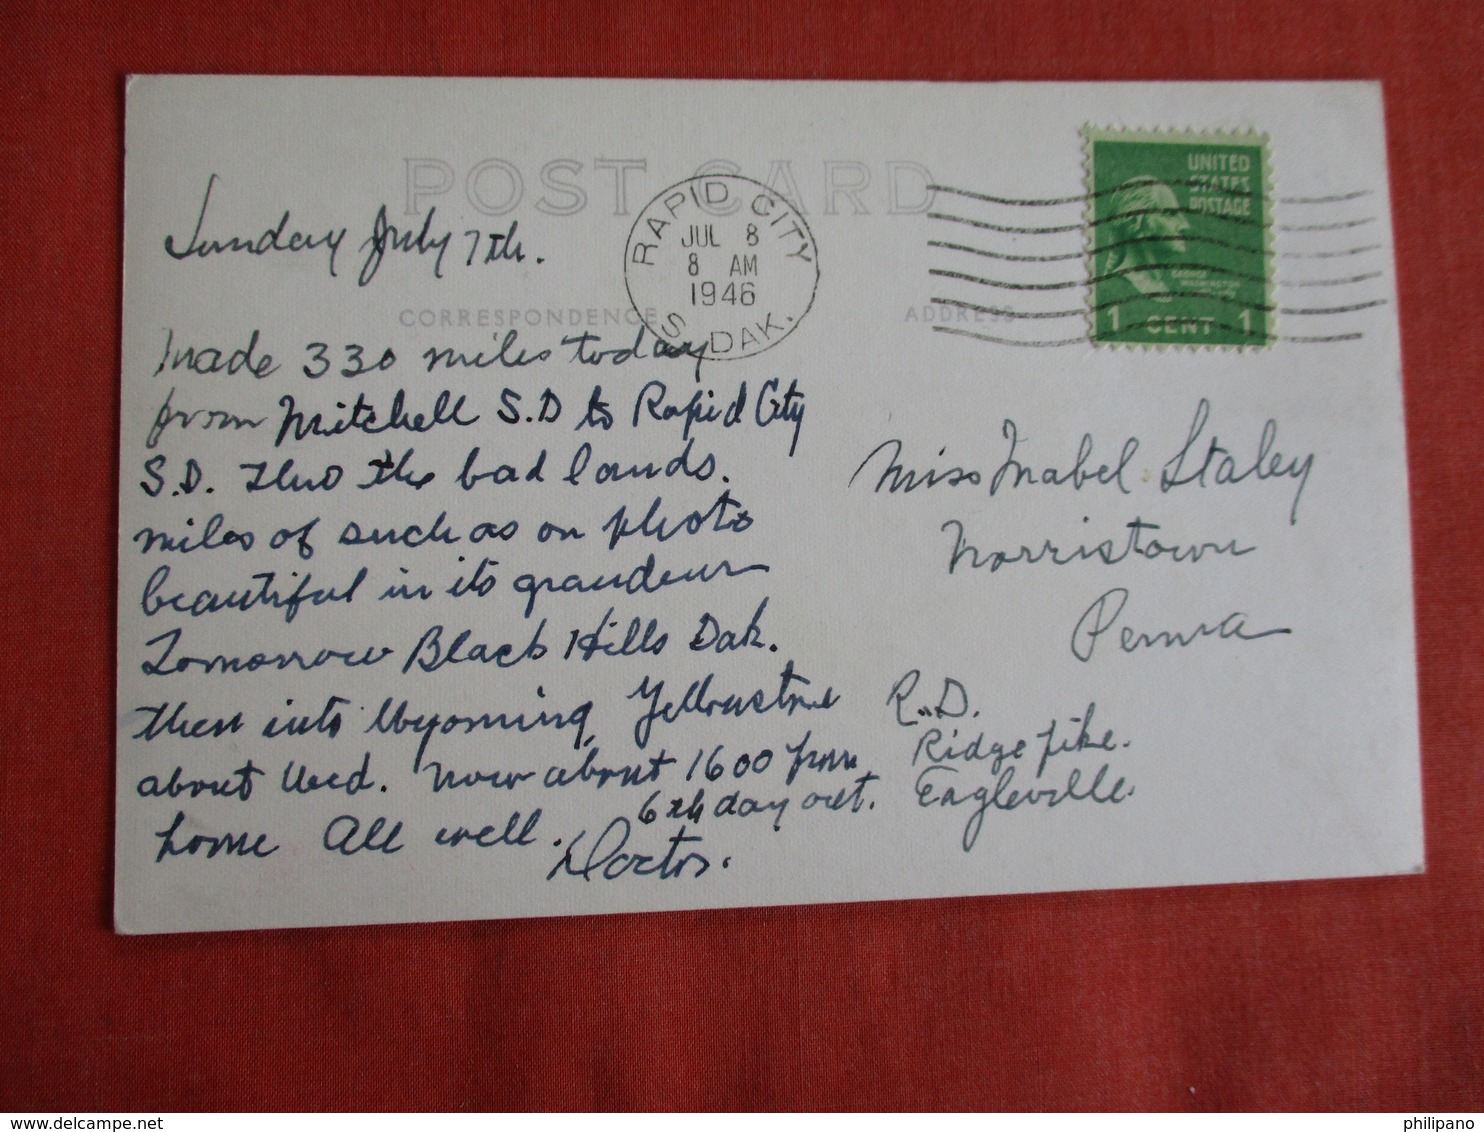 POST CARD
RAPID CITY
JUL 8
8 AM
1946
S. DAK.
UNITED
STATES
POSTAGE
GEORGE
WASHINGTON
1 CENT 1
CORRESPONDENCE
ADDRESS
Sunday July 7th.
Made 330 miles today
from Mitchell S.D to Rapid City
S.D. thro the bad lands.
miles of such as on photo
beautiful in its grandeur
Tomorrow Black Hills Dak.
then into Wyoming, Yellowstone
about Wed. Now about 1600 from
home All well. 6th day out.
Doctor.
Miss Mabel Staley
Norristown
Penna
R.D.
Ridge pike.
Eagleville.
philipano